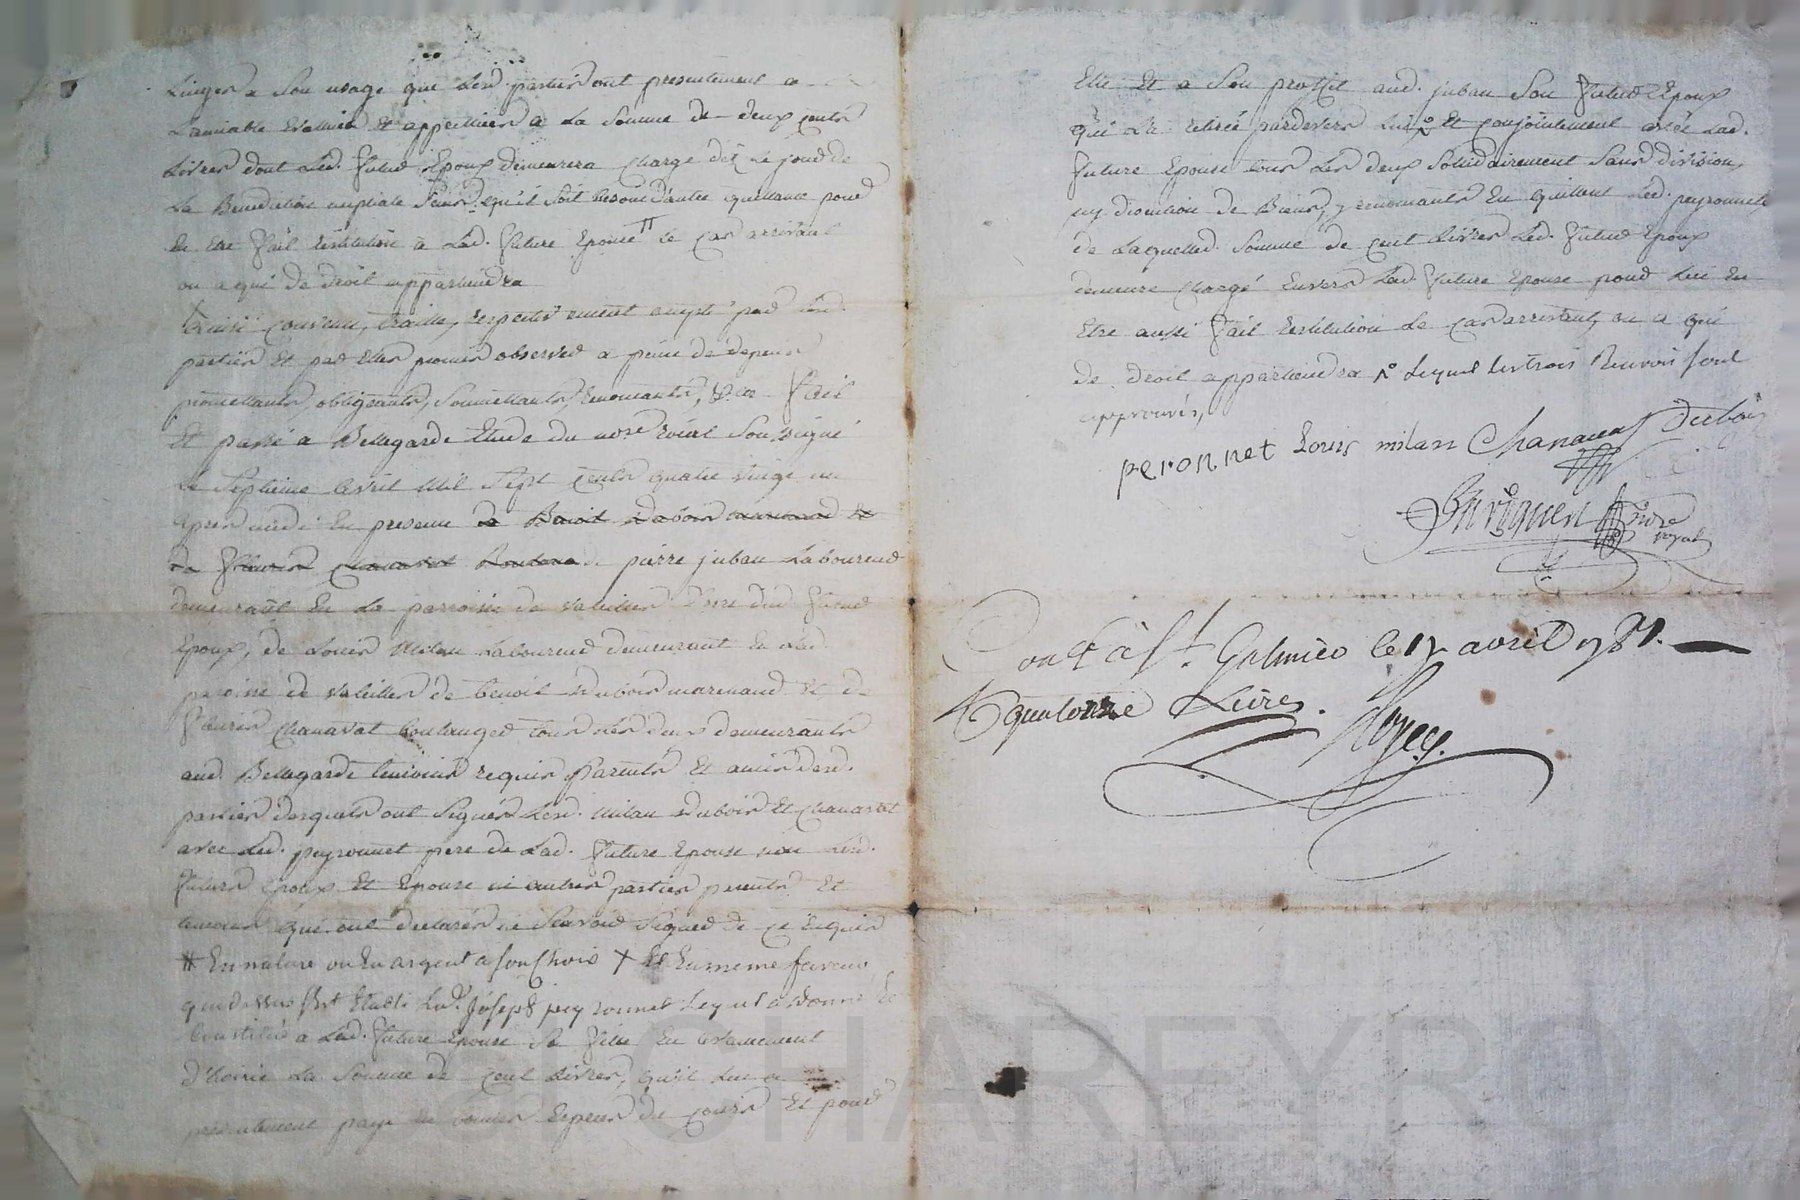 Linges a Son usage que Lesd. parties ont presentement a
L'amiable Evalués Et appréciés a La Somme de deux cents
Livres dont Led. futur Epoux demeurera chargé dez Le jour de
La Benediction nuptiale Sans qu'il Soit besoin d'autre quittance pour
En Etre fait restitution a Lad. future Epouse # Le cas arrivant
ou a qui de droit appartiendra
Ainsi convenu, traitté, respectivement accepté par Lesd.
parties Et par Elles promis observer a peine de depens
promettants, obligeants, Soumettants, renonceants, &a fait
Et passé a Bellegarde Etude du nore roïal Soussigné
Le Septieme avril mil Sept cents quatre vingt un
apres midi En presence de Benoit Dubois marchand Et
de fleuris chanavat Boulanger pierre juban Laboureur
demeurant En La parroisse de valeilles frere dud. futur
Epoux, de Louis Milan Laboureur demeurant En Lad.
paroisse de valeilles de benoit Dubois marchand Et de
fleuris chanavat boulanger tous Les deux demeurants
aud. Bellegarde temoins requis Parents Et amis desd.
parties Desquels ont Signés Lesd. Milan Dubois Et chanavat
avec Led. peyronnet pere de Lad. future Epouse non Lesd.
futurs Epoux Et Epouse ni autres parties parents Et
temoins qui ont declarés ne Scavoir Signer de ce Enquis
# En nature ou En argent a Son Choix + Et En meme faveur
que dessus Est Etabli Led. Joseph peyronnet Lequel a donné Et
Constitué a Lad. future Epouse Sa fille En avancement
d'hoirie La Somme de cent Livres, qu'il Lui a
presentement payé En bonnes Especes de cours Et pour
Elle Et a Son proffit aud. juban Son futur Epoux
qui L'a retirée pardevers Lui Et conjointement avec Lad.
future Epouse tous Les deux Solidairement Sans division
ny discution de Biens, y renonceants En quittent Led. peyronnet
de Laquelle Somme de cent Livres Led. futur Epoux
demeure chargé Envers Lad. future Epouse pour Lui En
Etre aussi fait restitution Le cas arrivant, ou a qui
de droit appartiendra Lequel Les trois Renvois Sont
approuvés,
peronnet Louis milan Chanavat Dubois
nore
royal
Contlé à St. Galmier le 17 avril 1781.
quatorze Livres.